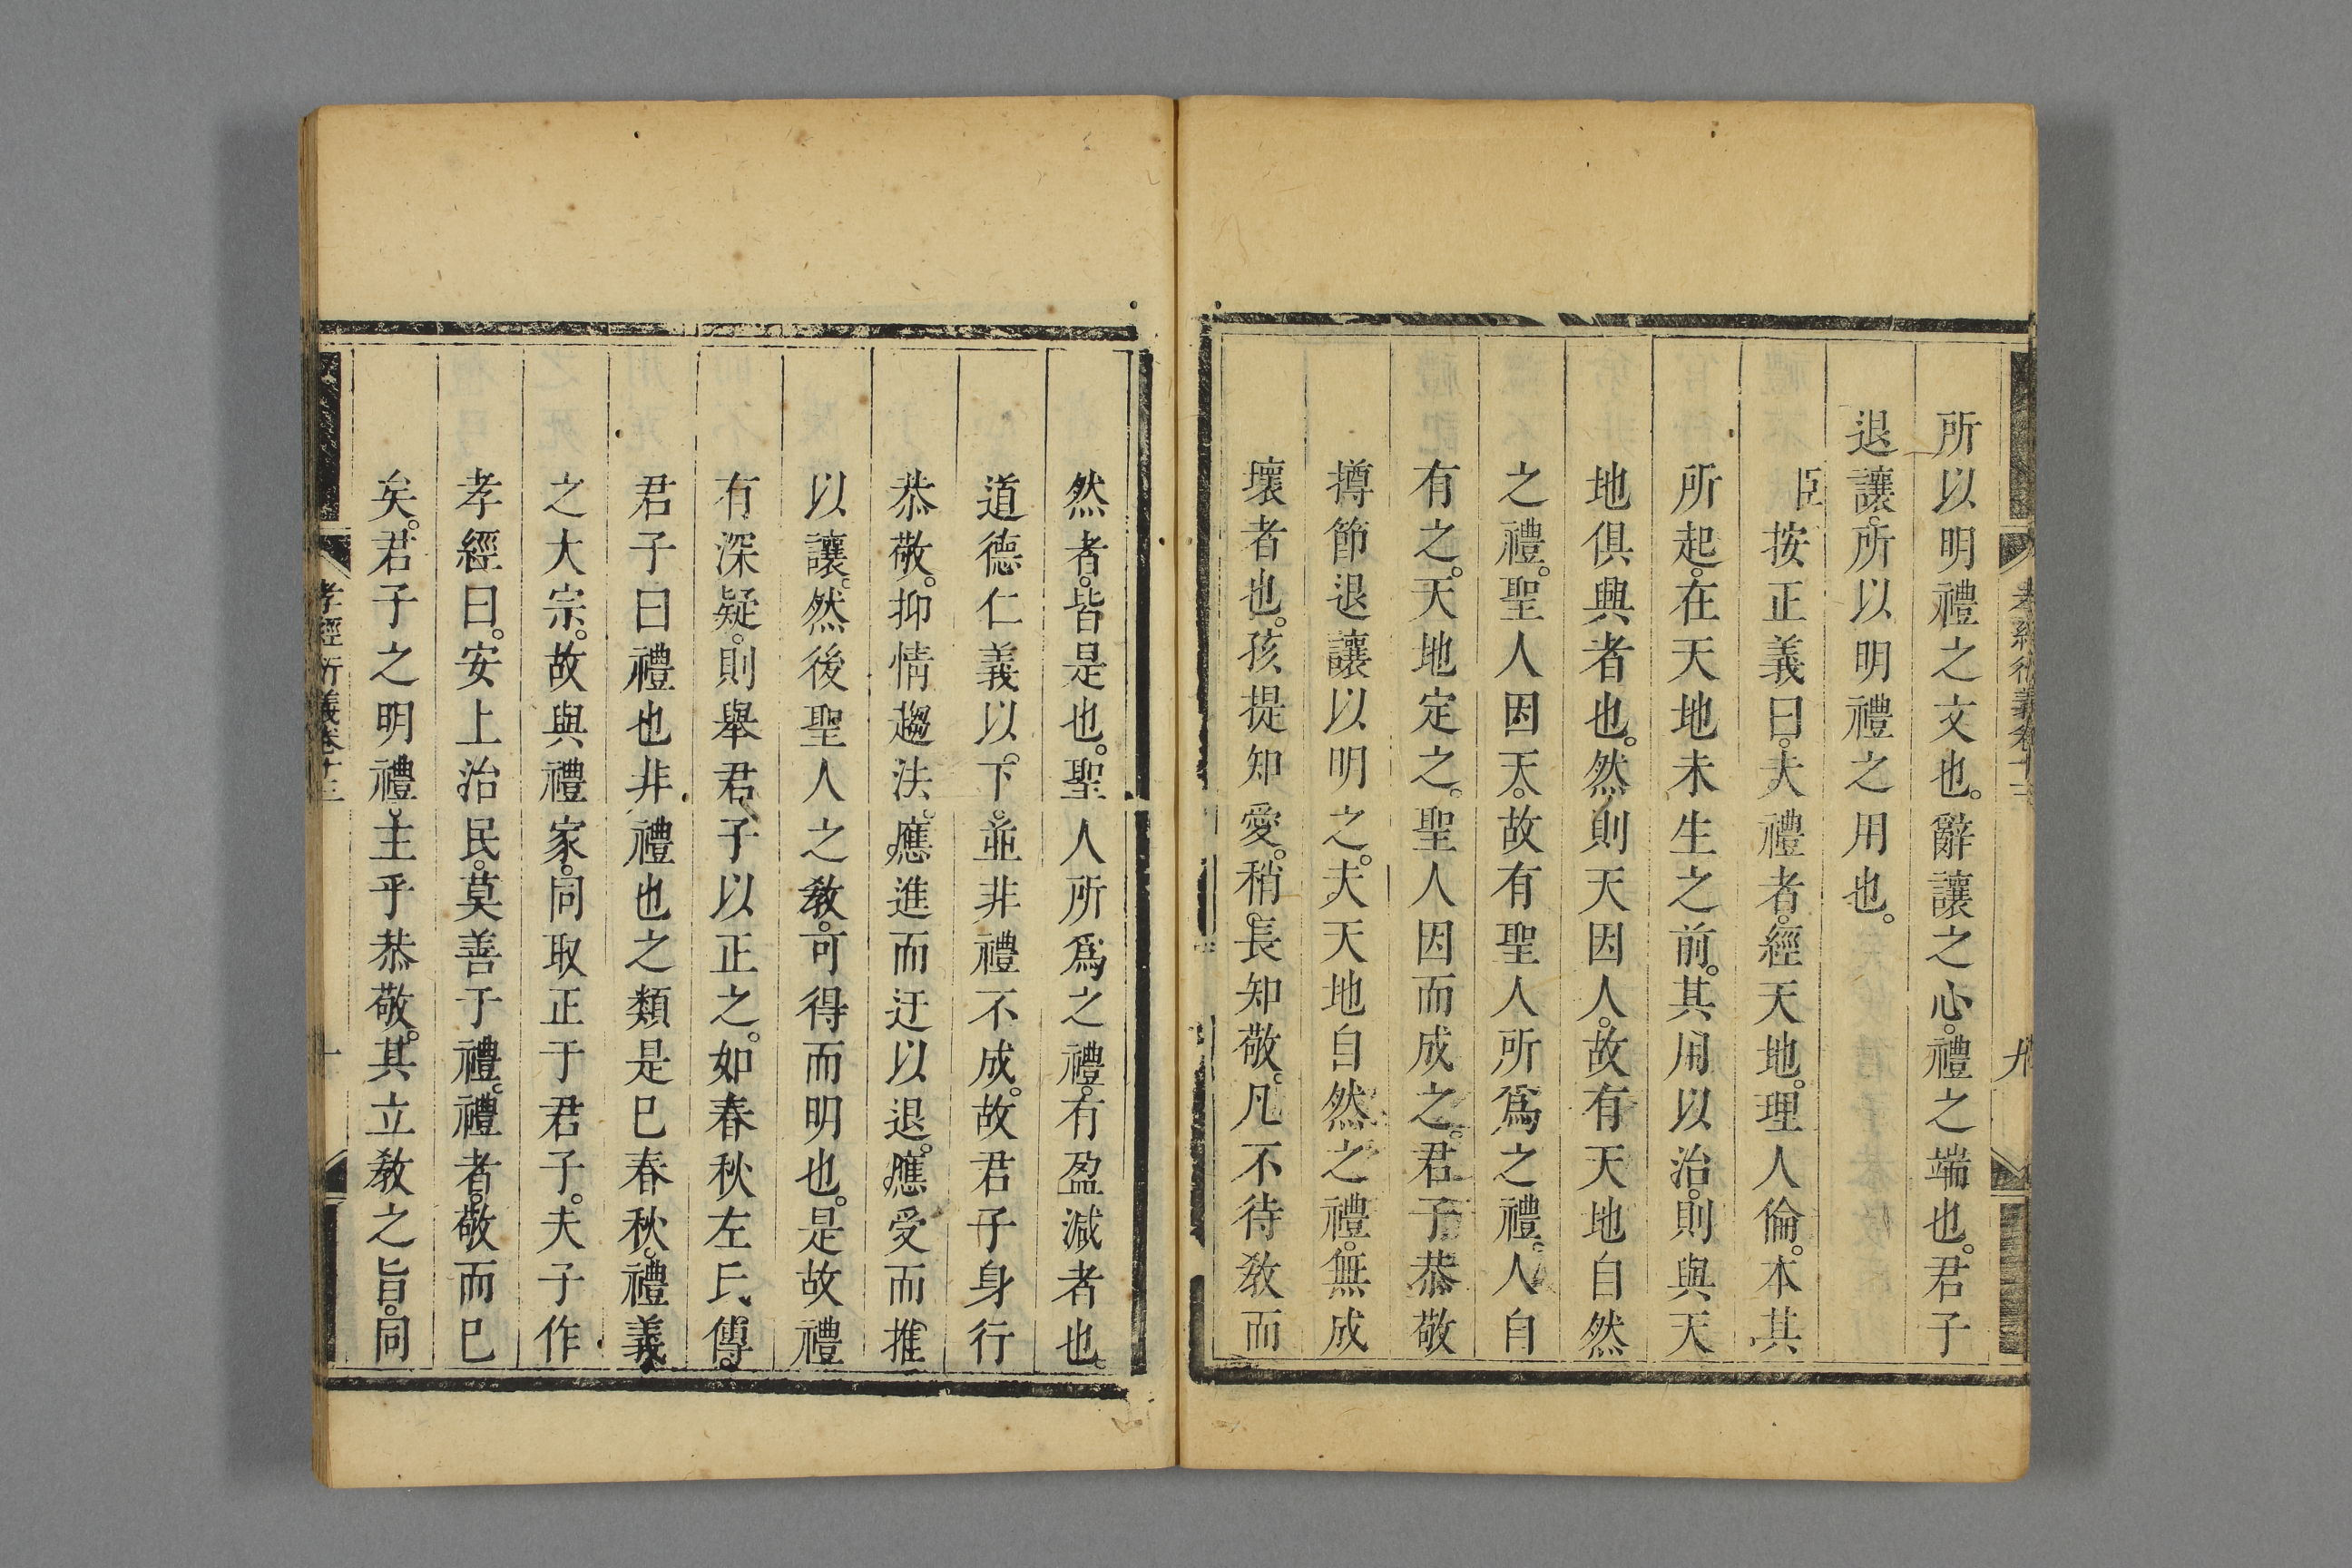 孝經衍義卷十三
九
所以明禮之文也。辭讓之心。禮之端也。君子
退讓。所以明禮之用也。
臣按正義曰。夫禮者。經天地。理人倫。本其
所起。在天地未生之前。其用以治。則與天
地俱興者也。然則天因人。故有天地自然
之禮。聖人因天。故有聖人所爲之禮。人自
有之。天地定之。聖人因而成之。君子恭敬
撙節退讓以明之。夫天地自然之禮。無成
壞者也。孩提知愛。稍長知敬。凡不待敎而
然者。皆是也。聖人所爲之禮。有盈減者也。
道德仁義以。下。並非禮不成。故君子身行
恭敬。抑情趨法。應進而迂以退。應受而推
以讓。然後聖人之敎。可得而明也。是故禮
有深疑。則舉君子以正之。如春秋左氏傳。
君子曰禮也非禮也之類是巳春秋。禮義
之大宗。故與禮家。同取正于君子。夫子作
孝經曰。安上治民。莫善于禮。禮者。敬而巳
矣。君子之明禮。主乎恭敬。其立敎之旨。同
孝經衍義卷十三
十